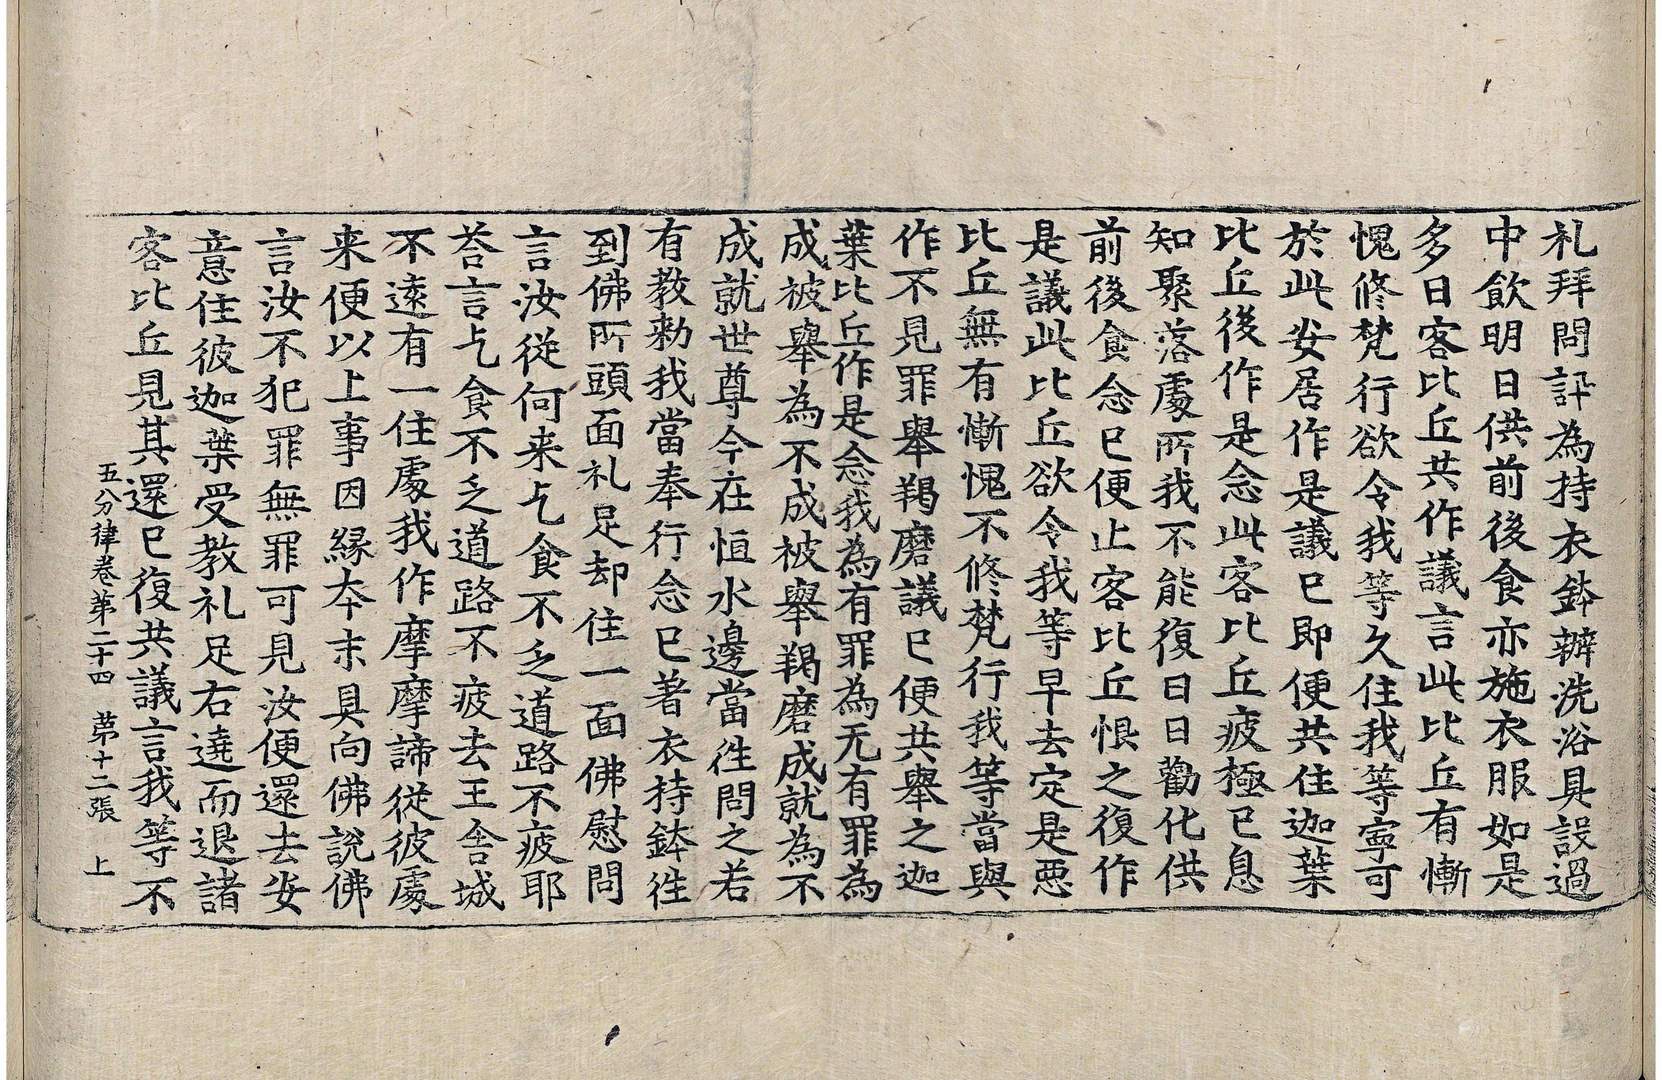 札拜問訊為持衣鉢辦洗浴具設過
中飲明日供前後食亦施衣服如是
多日客比丘共作議言此比丘有慚
愧修梵行欲令我等久住我等寧可
於此安居作是議已即便共住迦葉
比丘後作是念此客比丘疲極已息
知聚落處所我不能復日日勸化供
前後食念已便止客比丘恨之復作
是議此比丘欲令我等早去定是惡
比丘無有慚愧不修梵行我等當與
作不見罪舉羯磨議已便共舉之迦
葉比丘作是念我為有罪為无有罪為
成被舉為不成被舉羯磨成就為不
成就世尊今在恒水邊當往問之若
有教勑我當奉行念已著衣持鉢往
到佛所頭面礼足却住一面佛慰問
言汝從何来乞食不乏道路不疲耶
荅言乞食不乏道路不疲去王舎城
不遠有一住處我作摩摩諦從彼處
来便以上事因縁本末具向佛說佛
言汝不犯罪無罪可見汝便還去安
意住彼迦葉受教礼足右遶而退諸
客比丘見其還已復共議言我等不
五分律卷第二十四 苐十二張 上